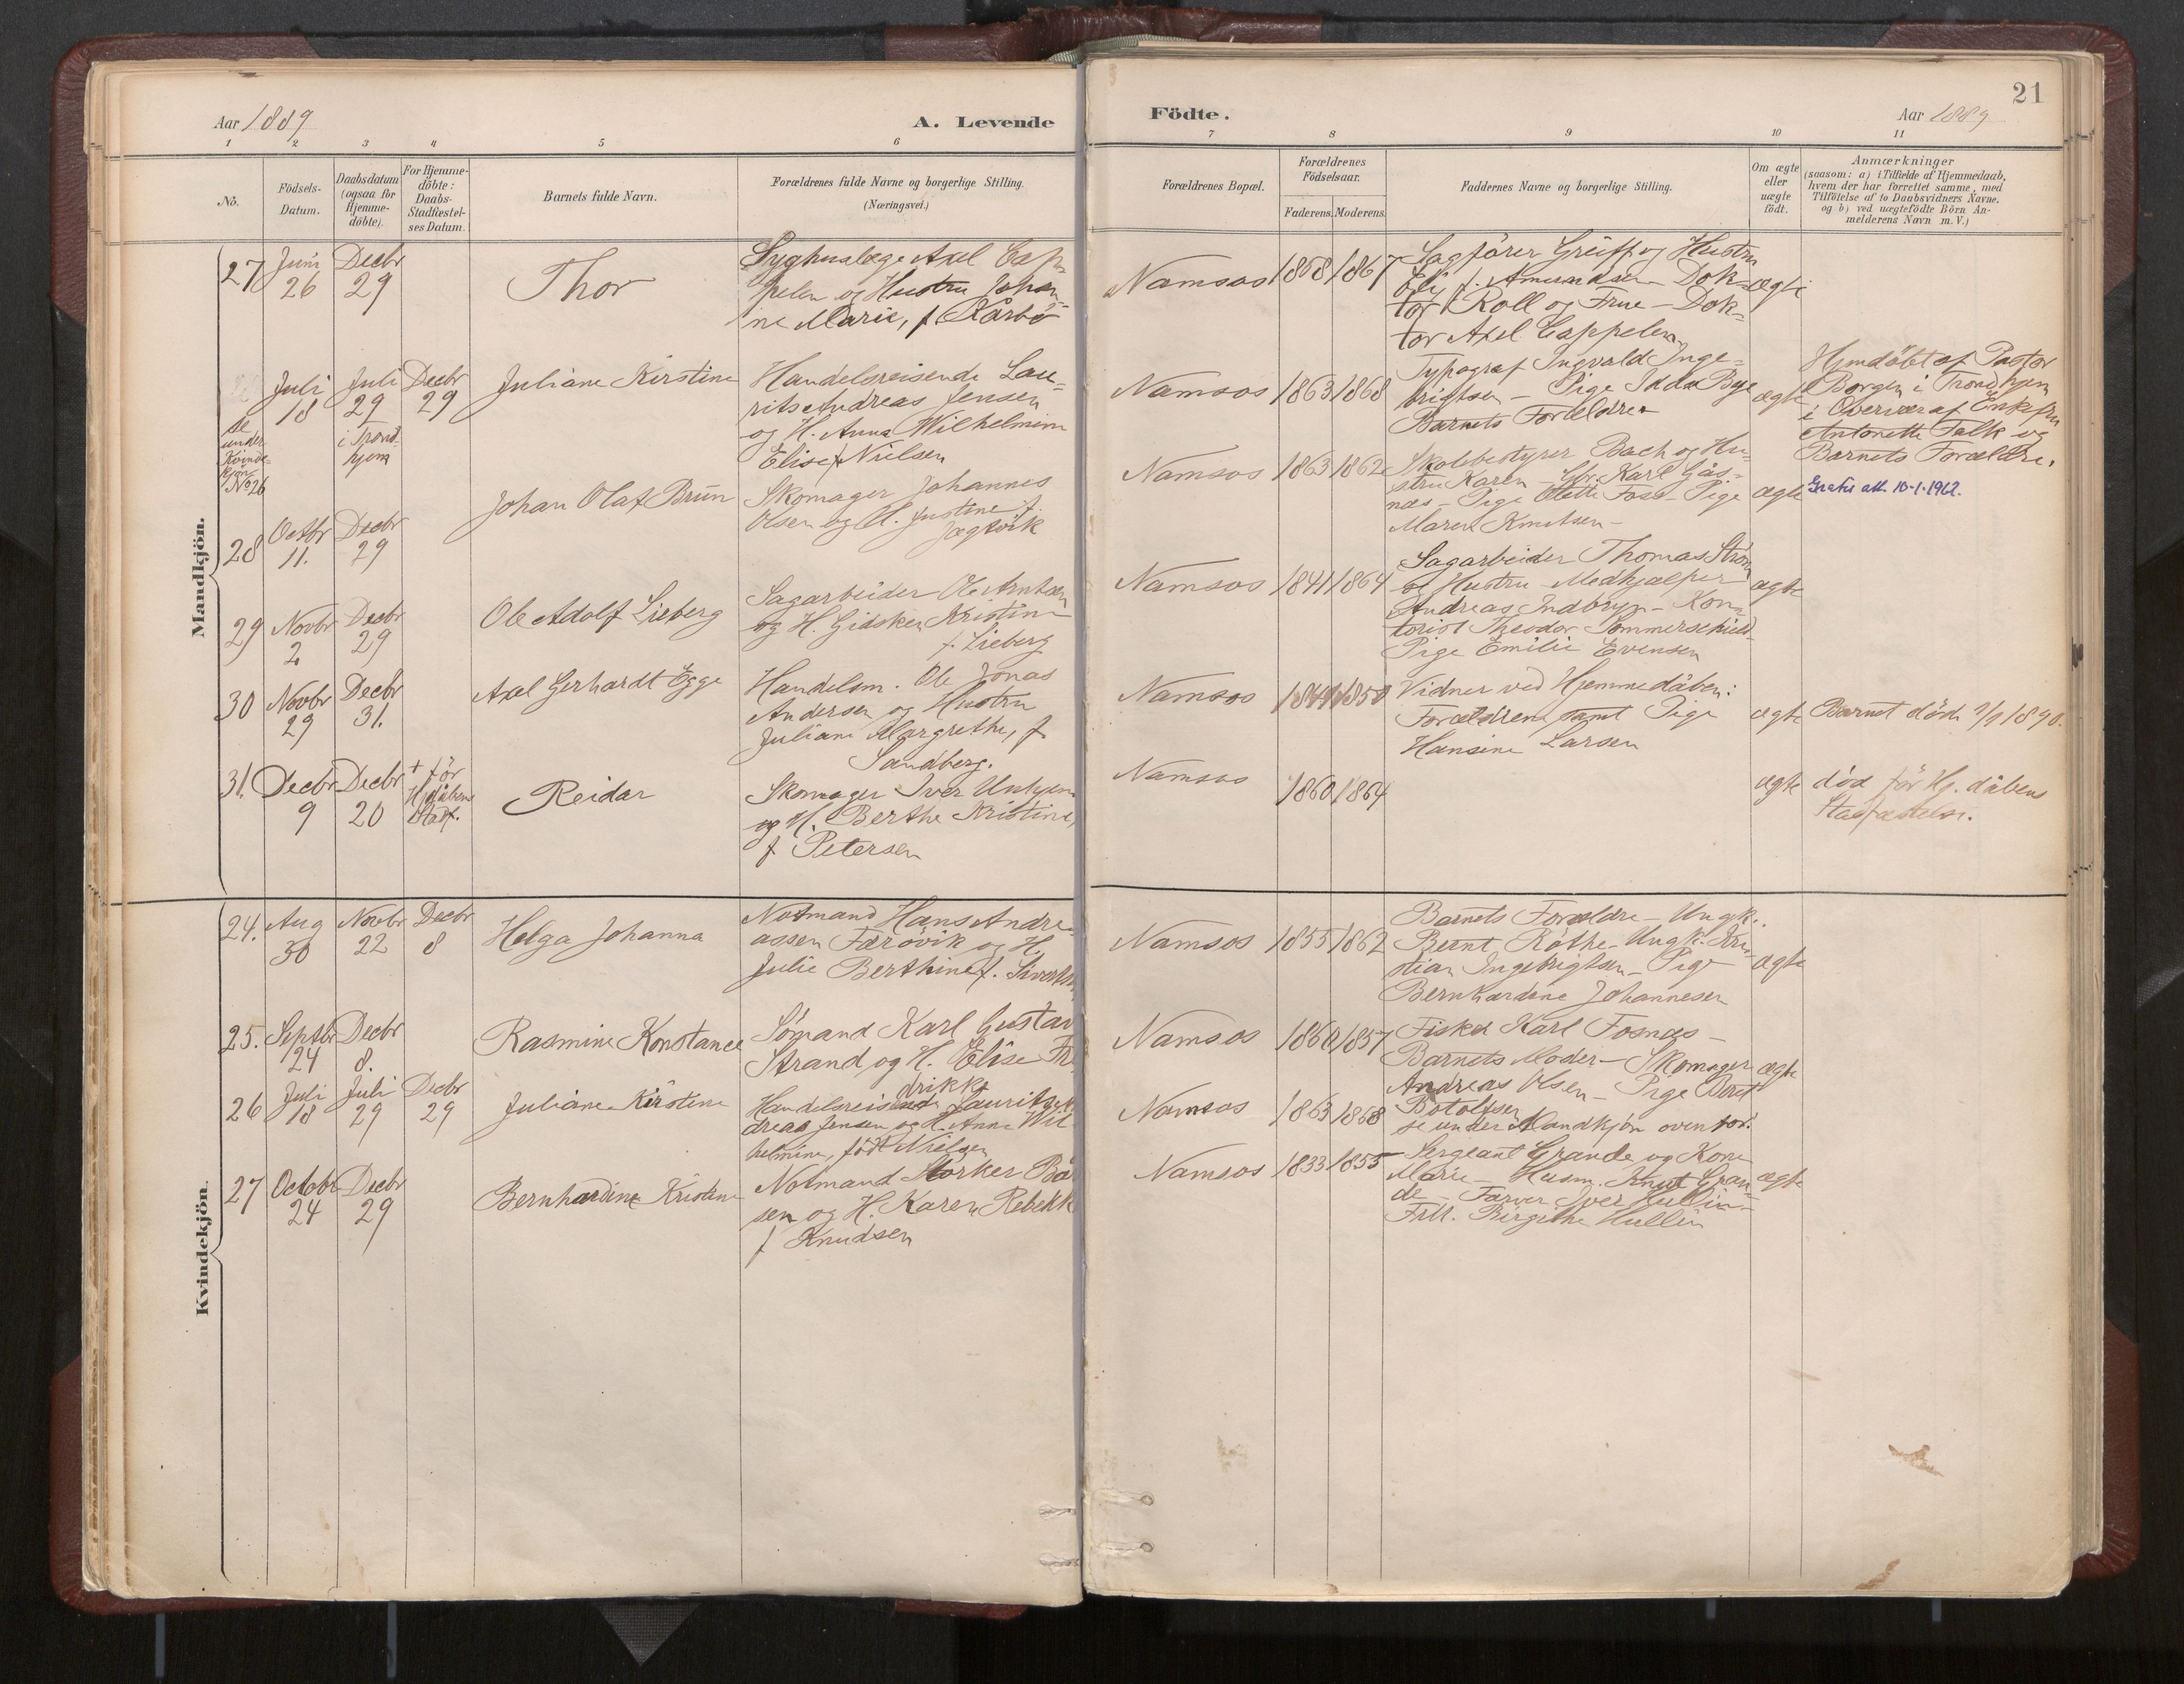 Aar 1889
A. Levende
1 2 3 4 5 6
No.
Födsels-
Datum.
Daabsdatum
(ogsaa for
Hjemme-
döbte).
For Hjemme-
döbte:
Daabs-
Stadfæstel-
ses Datum.
Barnets fulde Navn.
Forældrenes fulde Navne og borgerlige Stilling.
(Næringsvei.)
Mandkjön.
27
Juni
26
Decbr
29
Thor
Syghuslæge Axel Cap-
pelen og Hustru Johan-
ne Marie, f. Kårbø
Juli
18
Juli
29
i Trond-
hjem
Decbr
29
se
under
Kvinde-
kjøn
No 26
Juliane Kirstine
Handelsreisende Lau-
rits Andreas Jensen
og H. Anna Wilhelmine
Elise f. Nielsen
28
Octbr
11.
Decbr
29
Johan Olaf Brun
Skomager Johannes
Olsen og H. Justine f.
Jægtvik
29
Novbr
2
Decbr
29
Ole Adolf Lieberg
Sagarbeider Ole Arntsen
og H. Gidsken Kristine
f. Lieberg
30
Novbr
29
Decbr
31.
Axel Gerhardt Egge
Handelsm. Ole Jonas
Andersen og Hustru
Juliane Margrethe, f.
Sandberg.
31.
Decbr
9
Decbr
20
+ før
Hjdåbens
Stadf.
Reidar
Skomager Iver
og H. Berthe Kristine,
f Petersen
Kvindekjön.
24.
Aug
30
Novbr
22
Decbr
8
Helga Johanna
Notmand Hans Andre-
assen Færövik og H.
Julie Berthine f. Sivertsen
25.
Septbr
24
Decbr
8.
Rasmine Konstance
Sømand Karl Gustav
Strand og H. Elise Fre-
drikke
26
Juli
18
Juli
29
Decbr
29
Juliane Kirstine
Handelsreisende Laurits An-
dreas Jensen og H. Anna Wil-
helmine, født Nielsen
27
Octobr
24
Decbr
29
Bernhardine Kristine
Notmand Mörker Bår-
sen og H. Karen Rebekk
f Knudsen
21
Födte.
Aar 1889
7 8 9 10 11
Forældrenes Bopæl.
Forældrenes
Födselsaar.
Faderens. Moderens.
Faddernes Navne og borgerlige Stilling.
Om ægte
eller
uægte
födt.
Anmærkninger
(saasom: a) i Tilfælde af Hjemmedaab,
hvem der har forrettet samme, med
Tilföielse af to Daabsvidners Navne,
og b) ved uægtefödte Börn An-
melderens Navn m. V.)
Namsos 1858 1867
Sagfører Greiff og Hustru
Elly f. Amundsen - Dok-
tor Roll og Frue - Dok-
tor Axel Cappelen
ægte
Namsos 1863 1868
Typograf Ingvald Inge-
brigtsen - Pige Idda Bye
Barnets Forældre
ægte
Hjmdöbt af Pastor
Borgen i Trondhjem
i Overvær af Enkefru
Antonette Falk og
Barnets Forældre.
Namsos 1863 1862
Skolebestyrer Bach og Hu-
stru Karen - Gbr. Karl Gås-
næs - Pige Olette Foss - Pige
Maren Knutsen -
ægte
Gratis att. 10-1-1962.
Namsos 1841 1864
Sagarbeider Thomas Strøm
og Hustru - Medhjælper
Andreas Indbryn - Kon-
torist Theodor Sommerschield
Pige Emilie Evensen
ægte
Namsos 1849 1850
Vidner ved Hjemmedåben:
Forældrene samt Pige
Hansine Larsen
ægte
Barnet död 2/1 1890.
Namsos 1860 1864
ægte
død før Hj. dåbens
Stadfæstelse.
Namsos 1855 1862
Barnets Forældre - Ungk.
Bernt Røthe - Ungk. Kri-
stian Ingebrigtsen - Pige
Bernhardine Johannesen
ægte
Namsos 1860 1857
Fisker Karl Fosnæs -
Barnets Moder - Skomager
Andreas Olsen - Pige Beret
Botolfsen
ægte
Namsos 1863 1868
se under Mandkjøn ovenfor.
Namsos 1833 1855
Sergeant Grande og Kone
Marie - Husm. Knut Gran-
de - Farver Iver Hullin -
Frk. Birgithe Hullin
ægte